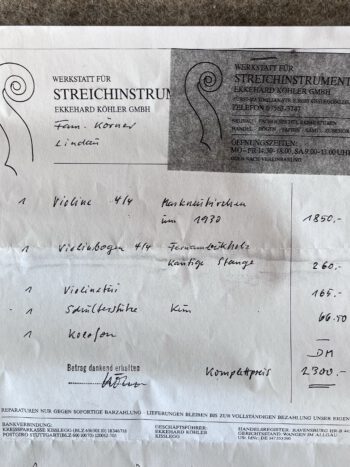 WERKSTATT FÜR
STREICHINSTRUM
EKKEHARD KÖHLER GMBH
WERKSTATT FÜR
STREICHINSTRUMENT
EKKEHARD KÖHLER GMBH
TELEFON
ÖFFNUNGSZEITEN:
MO - FR 14.30 - 18.00, SA 9.00 - 13.00 UHR
ODER NACH VEREINBARUNG
Fam. Körner
Lindau
1 Violine 4/4 Markneukirchen
um 1930 1850.-
1 Violinbogen 4/4 Fernambukholz
kantige Stange 260.-
1 Violinetui 165.-
1 Schulterstütze Kun 66.50
1 Kolofon
DM
Betrag dankend erhalten
Komplettpreis 2300.-
REPARATUREN NUR GEGEN SOFORTIGE BARZAHLUNG - LIEFERUNGEN BLEIBEN BIS ZUR VOLLSTÄNDIGEN BEZAHLUNG UNSER EIGEN
BANKVERBINDUNG:
KREISSPARKASSE KISSLEGG
POSTGIRO STUTTGART
GESCHÄFTSFÜHRER:
EKKEHARD KÖHLER
KISSLEGG
HANDELSREGISTER: RAVENSBURG
GERICHTSSTAND: WANGEN IM ALLGÄU